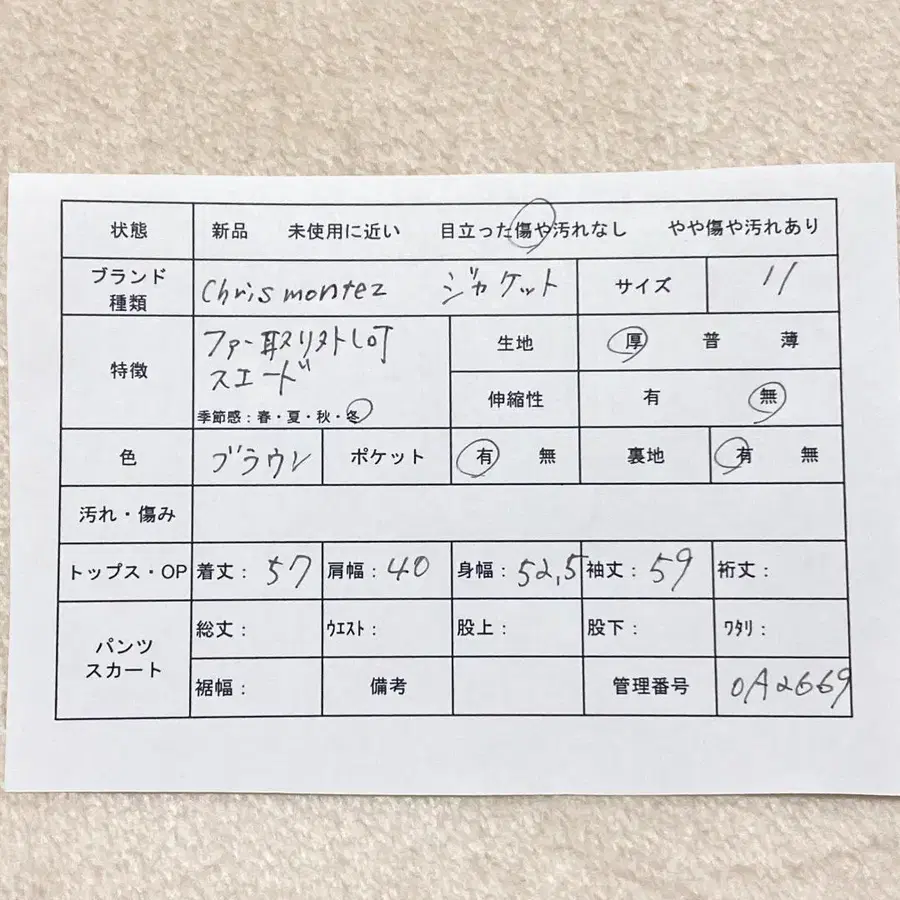 状態 新品 未使用に近い 目立った傷や汚れなし やや傷や汚れあり
ブランド 種類 Chris montez ジャケット サイズ 11
特徴 ファー取り外しOK
スエード
季節感：春・夏・秋・冬
生地 厚 普 薄
伸縮性 有 無
色 ブラウン ポケット 有 無 裏地 有 無
汚れ・傷み
トップス・OP 着丈： 57 肩幅： 40 身幅： 52,5 袖丈： 59 裄丈：
パンツ スカート 総丈： ｳｴｽﾄ： 股上： 股下： ﾜﾀﾘ：
裾幅： 備考 管理番号 0A2669